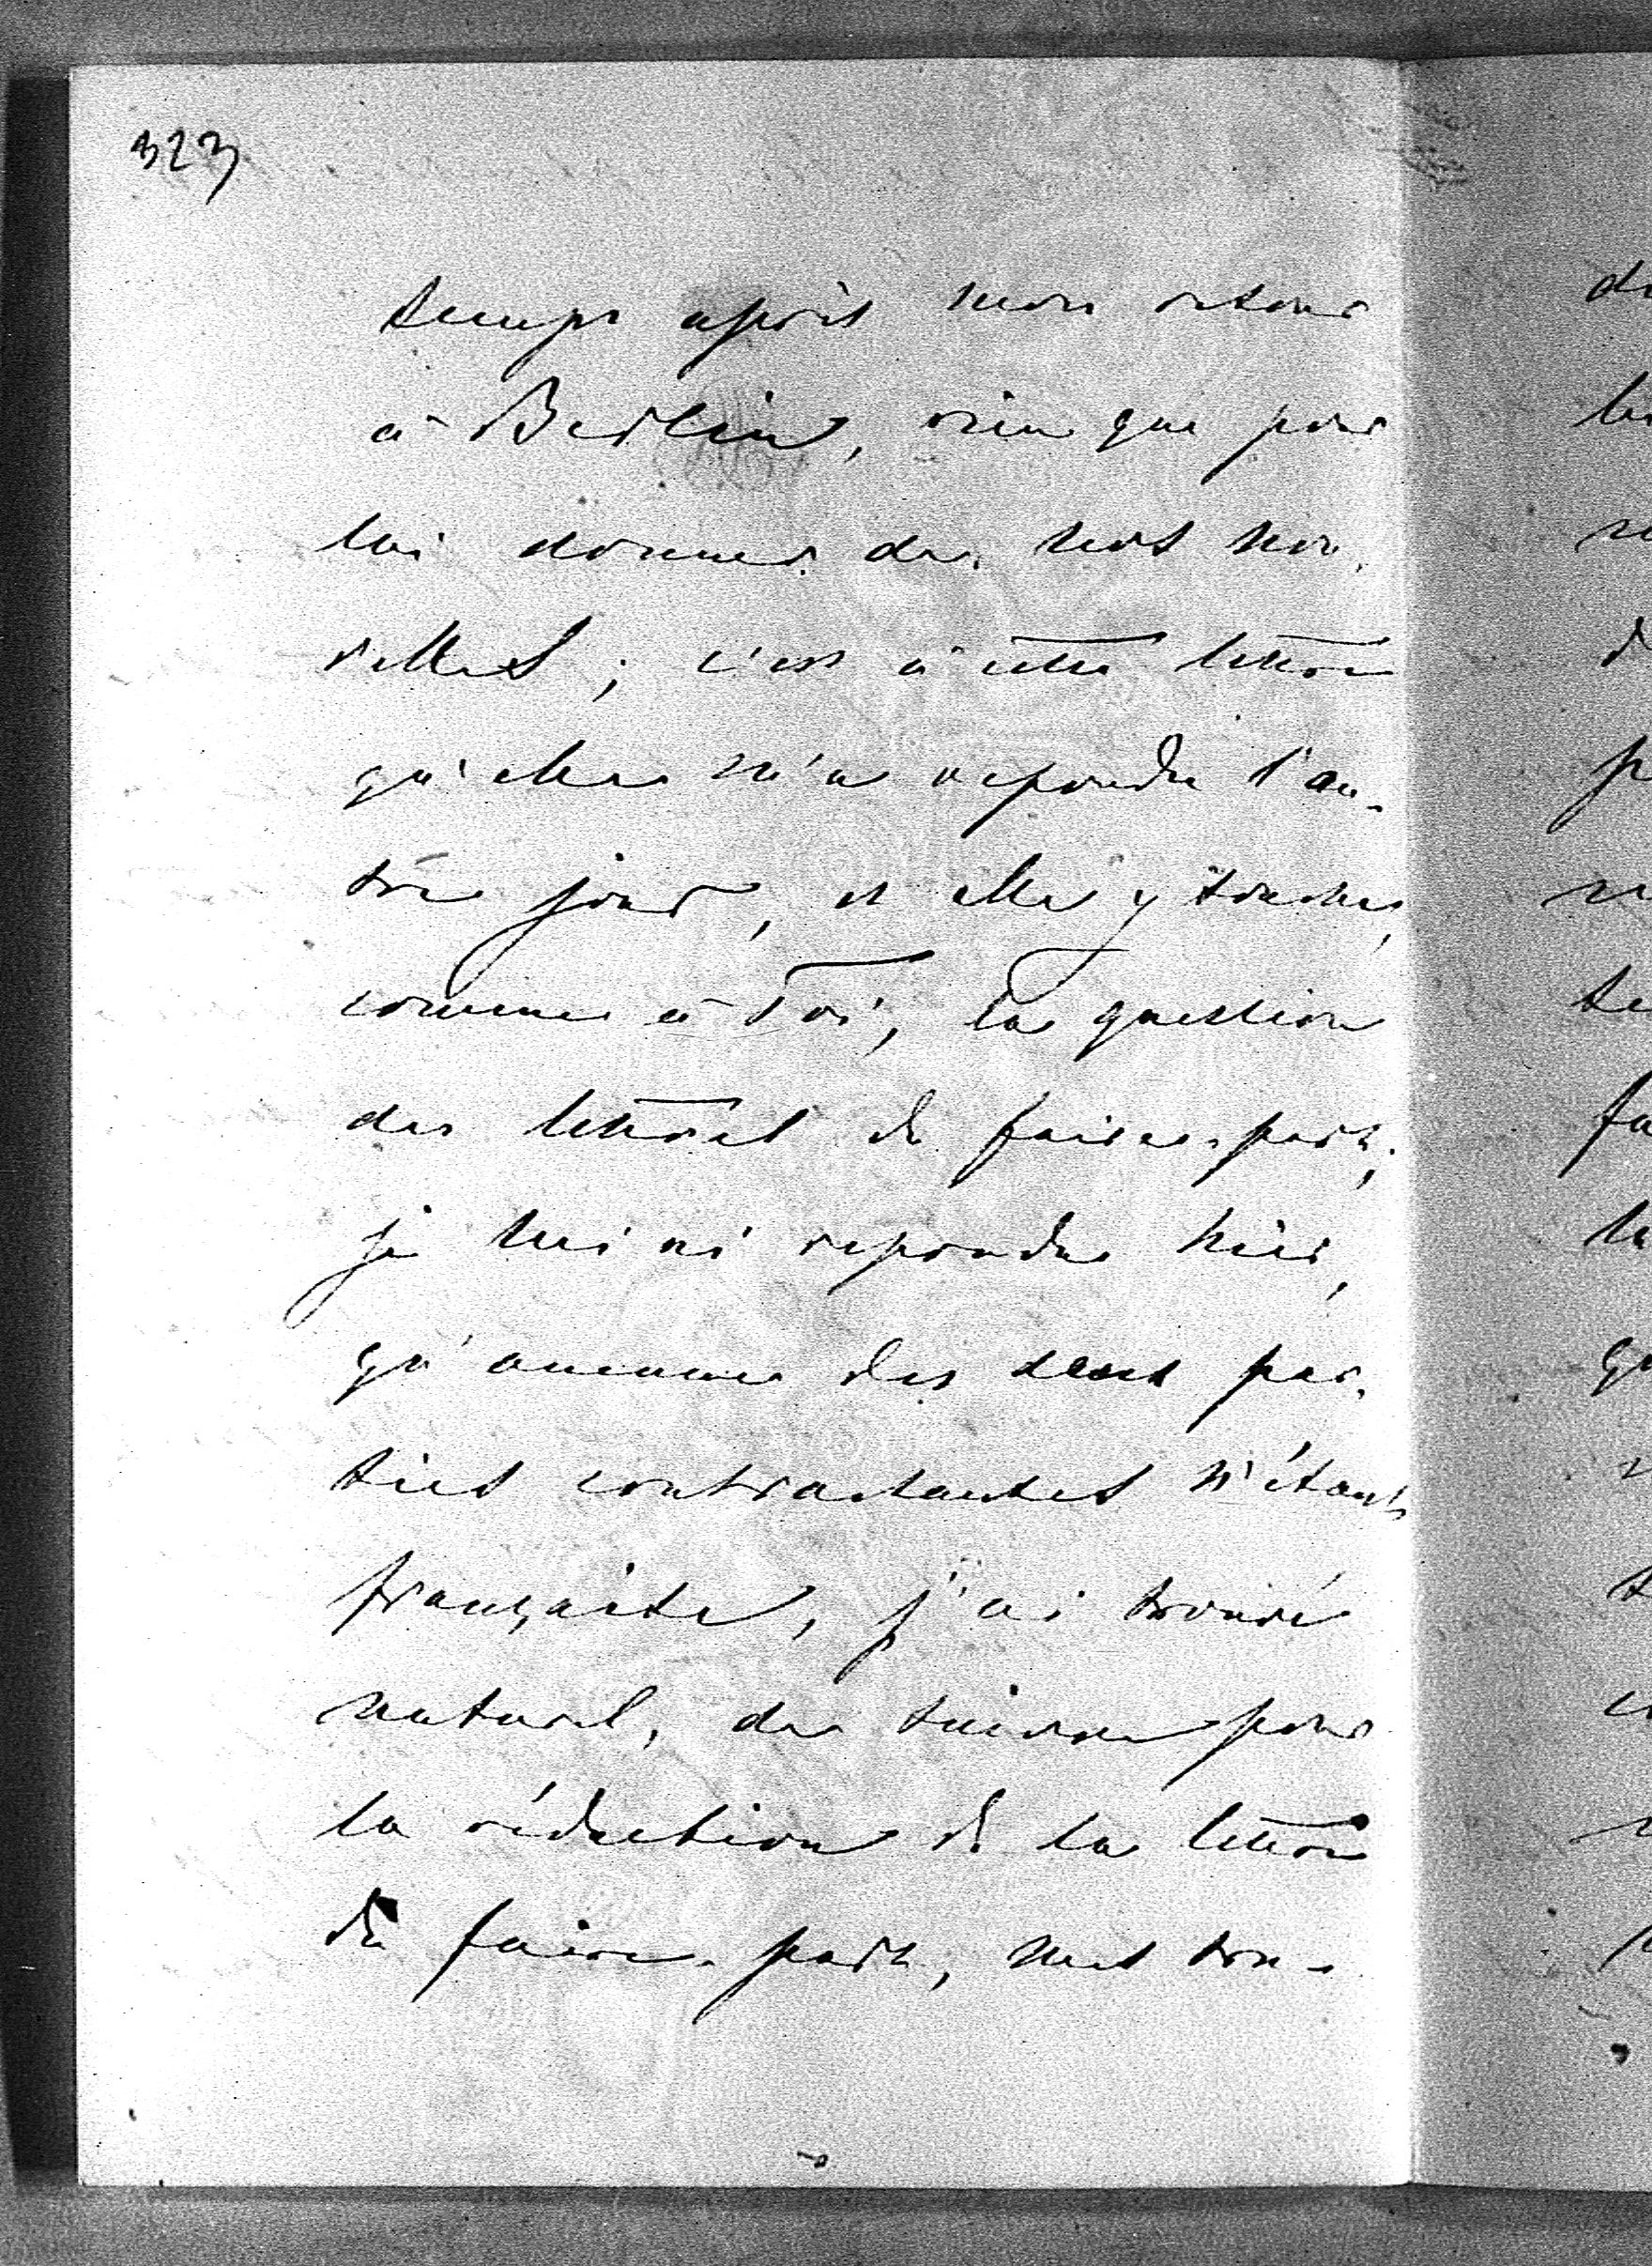 323
temps après mon retour
à Berlin, rien que pour
lui donner de nos nou-
velles ; c'est à cette lettre
qu'elle m'a repondu l'au-
tre jour, et elle y touche,
comme à Toi, la question
des lettres de faire-part ;
je lui ai repondu hier,
qu'aucune des deux par-
ties contractantes n'étant
française, j'ai trouvé
naturel, de suivre pour
la rédaction de la lettre
de faire-part, nos